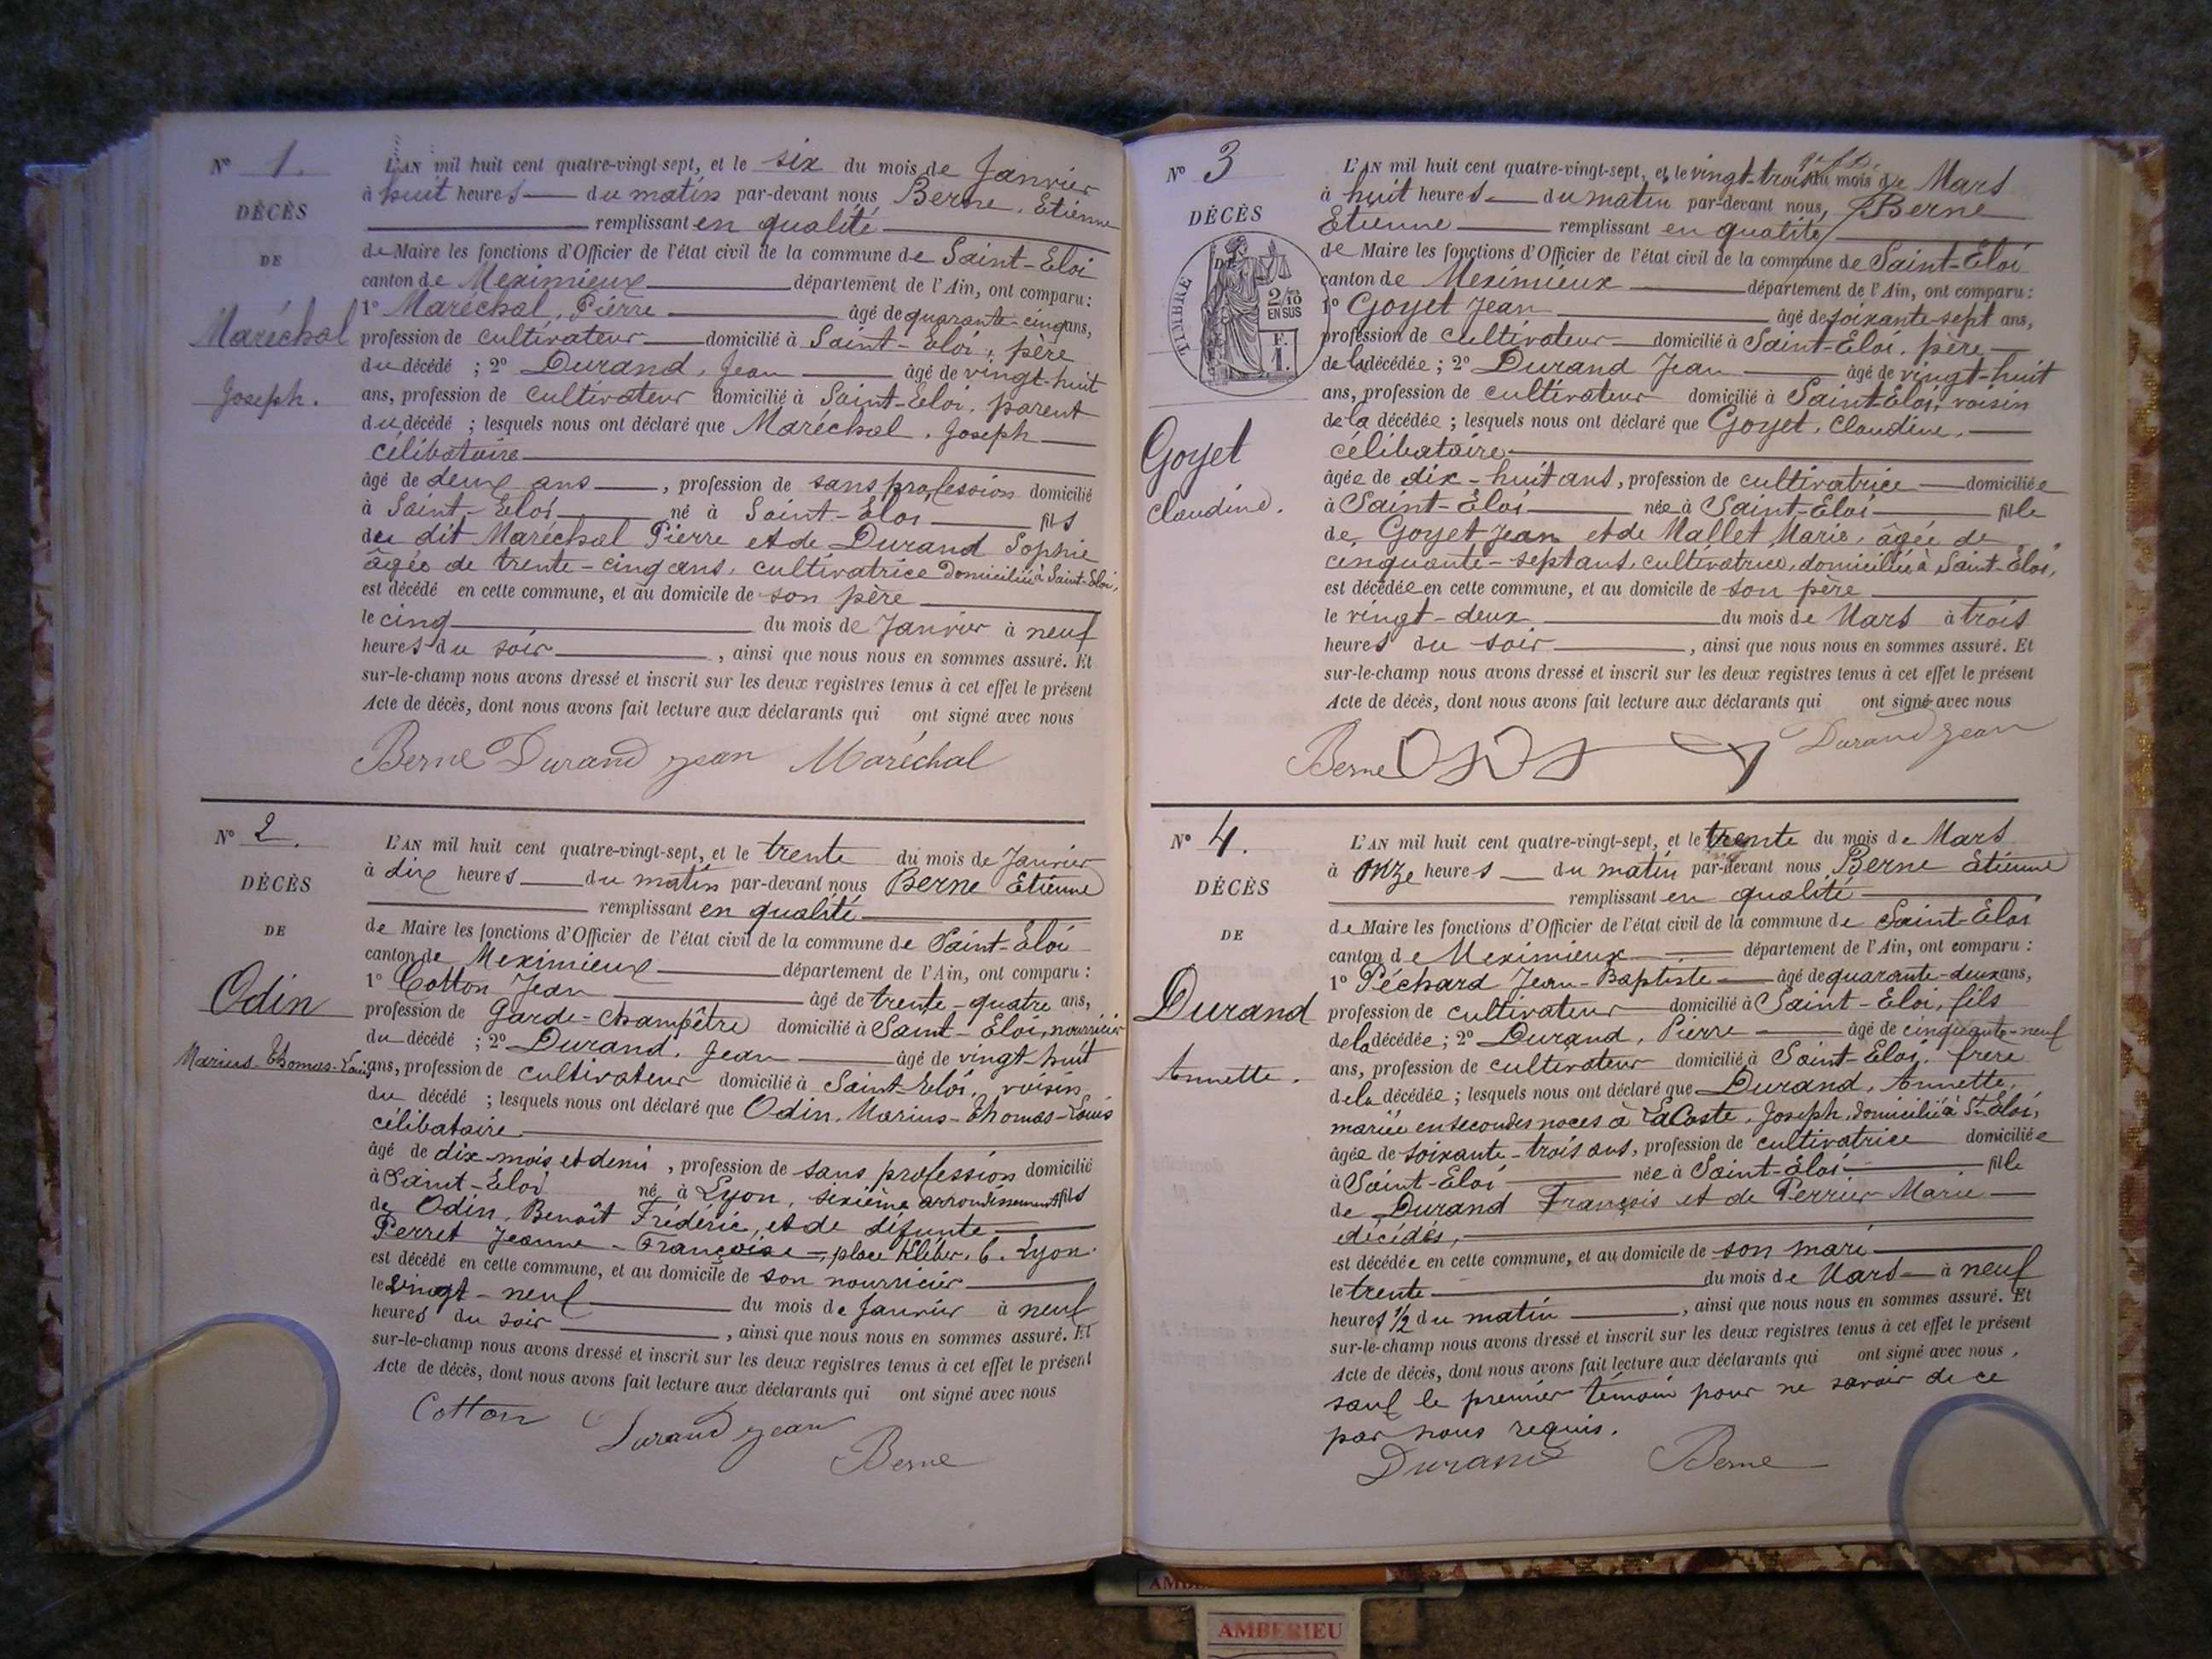 N° 1.
DÉCÈS
DE
Maréchal
Joseph.
L'AN mil huit cent quatre-vingt-sept, et le six du mois de Janvier
à huit heures du matin par-devant nous Berne, Etienne
remplissant en qualité
de Maire les fonctions d'Officier de l'état civil de la commune de Saint-Eloi
canton de Meximieux département de l'Ain, ont comparu :
1° Maréchal, Pierre âgé de quarante-cinq ans,
profession de cultivateur domicilié à Saint-Eloi, père
du décédé ; 2° Durand, Jean âgé de vingt-huit
ans, profession de cultivateur domicilié à Saint-Eloi, parent
du décédé ; lesquels nous ont déclaré que Maréchal, Joseph
célibataire
âgé de deux ans, profession de sans profession domicilié
à Saint-Eloi né à Saint-Eloi fils
du dit Maréchal Pierre et de Durand Sophie
âgée de trente-cinq ans, cultivatrice domiciliée à Saint-Eloi,
est décédé en cette commune, et au domicile de son père
le cinq du mois de Janvier à neuf
heures du soir, ainsi que nous nous en sommes assuré. Et
sur-le-champ nous avons dressé et inscrit sur les deux registres tenus à cet effet le présent
Acte de décès, dont nous avons fait lecture aux déclarants qui ont signé avec nous
Berne Durand jean Maréchal
N° 2.
DÉCÈS
DE
Odin
Marius-Thomas-Louis
L'AN mil huit cent quatre-vingt-sept, et le trente du mois de Janvier
à dix heures du matin par-devant nous Berne Etienne
remplissant en qualité
de Maire les fonctions d'Officier de l'état civil de la commune de Saint-Eloi
canton de Meximieux département de l'Ain, ont comparu :
1° Cotton Jean âgé de trente-quatre ans,
profession de Garde-Champêtre domicilié à Saint-Eloi, nourricier
du décédé ; 2° Durand, Jean âgé de vingt-huit
ans, profession de cultivateur domicilié à Saint-Eloi, voisin
du décédé ; lesquels nous ont déclaré que Odin, Marius-Thomas-Louis
célibataire
âgé de dix-mois et demi, profession de sans profession domicilié
à Saint-Eloi né à Lyon, sixième arrondissement fils
de Odin, Benoît Frédéric, et de défunte
Perret Jeanne-Françoise, place Kléber, 6. Lyon.
est décédé en cette commune, et au domicile de son nourricier
le vingt-neuf du mois de Janvier à neuf
heures du soir, ainsi que nous nous en sommes assuré. Et
sur-le-champ nous avons dressé et inscrit sur les deux registres tenus à cet effet le présent
Acte de décès, dont nous avons fait lecture aux déclarants qui ont signé avec nous
Cotton Durand jean
Berne
N° 3
DÉCÈS
DE
TIMBRE
2/10
EN SUS
F.
1.
Goyet
Claudine.
L'AN mil huit cent quatre-vingt-sept, et le vingt-trois du mois de Mars
à huit heures du matin par-devant nous, Berne
Etienne remplissant en qualité
de Maire les fonctions d'Officier de l'état civil de la commune de Saint-Eloi
canton de Meximieux département de l'Ain, ont comparu :
1° Goyet Jean âgé de soixante-sept ans,
profession de cultivateur domicilié à Saint-Eloi, père
de la décédée ; 2° Durand Jean âgé de vingt-huit
ans, profession de cultivateur domicilié à Saint-Eloi, voisin
de la décédée ; lesquels nous ont déclaré que Goyet, Claudine,
célibataire
âgée de dix-huit ans, profession de cultivatrice domiciliée
à Saint-Eloi née à Saint-Eloi fille
de Goyet Jean et de Mallet Marie, âgée de
cinquante-sept ans, cultivatrice, domiciliée à Saint-Eloi,
est décédée en cette commune, et au domicile de son père
le vingt-deux du mois de Mars à trois
heures du soir, ainsi que nous nous en sommes assuré. Et
sur-le-champ nous avons dressé et inscrit sur les deux registres tenus à cet effet le présent
Acte de décès, dont nous avons fait lecture aux déclarants qui ont signé avec nous
Berne Durand jean
N° 4.
DÉCÈS
DE
Durand
Annette.
L'AN mil huit cent quatre-vingt-sept, et le trente du mois de Mars
à onze heures du matin par-devant nous Berne Etienne
remplissant en qualité
de Maire les fonctions d'Officier de l'état civil de la commune de Saint-Eloi
canton de Meximieux département de l'Ain, ont comparu :
1° Péchard Jean-Baptiste âgé de quarante-deux ans,
profession de cultivateur domicilié à Saint-Eloi, fils
de la décédée ; 2° Durand, Pierre âgé de cinquante-neuf
ans, profession de cultivateur domicilié à Saint-Eloi, frère
de la décédée ; lesquels nous ont déclaré que Durand, Annette,
mariée en secondes noces à LaCoste, Joseph, domiciliée à St Eloi,
âgée de soixante-trois ans, profession de cultivatrice domiciliée
à Saint-Eloi née à Saint-Eloi fille
de Durand François et de Perrier Marie
décédés,
est décédée en cette commune, et au domicile de son mari
le trente du mois de Mars à neuf
heures 1/2 du matin, ainsi que nous nous en sommes assuré. Et
sur-le-champ nous avons dressé et inscrit sur les deux registres tenus à cet effet le présent
Acte de décès, dont nous avons fait lecture aux déclarants qui ont signé avec nous,
sauf le premier témoin pour ne savoir de ce
par nous requis.
Durand Berne
AMBERIEU